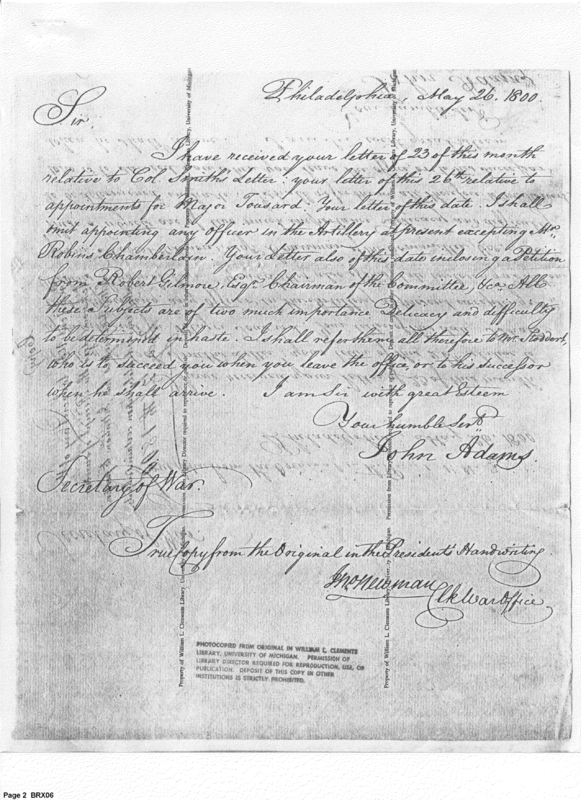 Philadelphia May 26. 1800.
Sir.
I have received your letter of 23 of this month
relative to Col Smith's Letter: your letter of this 26th relative to
appointments for Major Tousard. Your letter of this date. I shall
omit appointing any officer in the Artillery at present excepting Mr.
Robins Chamberlain. Your Letter also of this date inclosing a Petition
from Robert Gilmore, Esqr. Chairman of the Committee, &ca. All
these Subjects are of two much importance Delicacy and difficulty
to be determined in haste. I shall refer them all therefore to Mr. Stoddert,
who is to succeed you when you leave the office, or to his successor
when he shall arrive. I am Sir with great Esteem
Your humble Servt
John Adams.
Secretary of War.
True Copy from the Original in the President's Handwriting
Jno Newman
Clk War Office
PHOTOCOPIED FROM ORIGINAL IN WILLIAM L. CLEMENTS
LIBRARY, UNIVERSITY OF MICHIGAN. PERMISSION OF
LIBRARY DIRECTOR REQUIRED FOR REPRODUCTION, USE, OR
PUBLICATION. DEPOSIT OF THIS COPY IN OTHER
INSTITUTIONS IS STRICTLY PROHIBITED.
Property of William L. Clements Library, University of Michigan
Page 2 BRX06